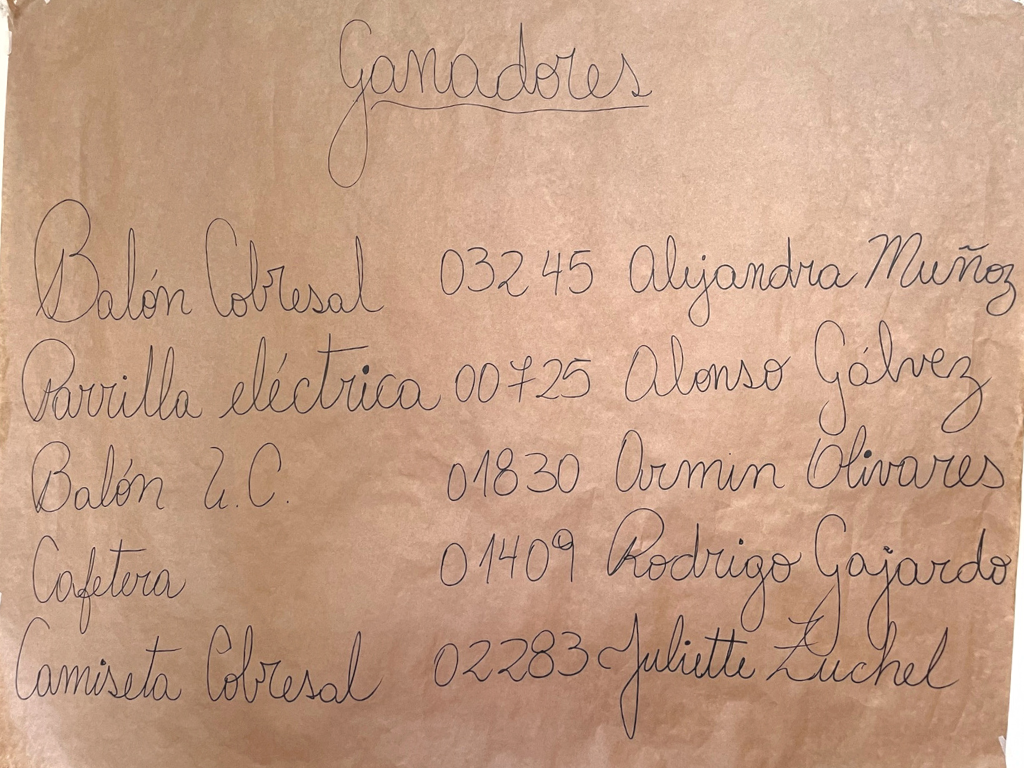 Ganadores
Balón Cobresal 03245 Alejandra Muñoz
Parrilla eléctrica 00725 Alonso Gálvez
Balón U.C. 01830 Armin Olivares
Cafetera 01409 Rodrigo Gajardo
Camiseta Cobresal 02283 Juliette Zuchel